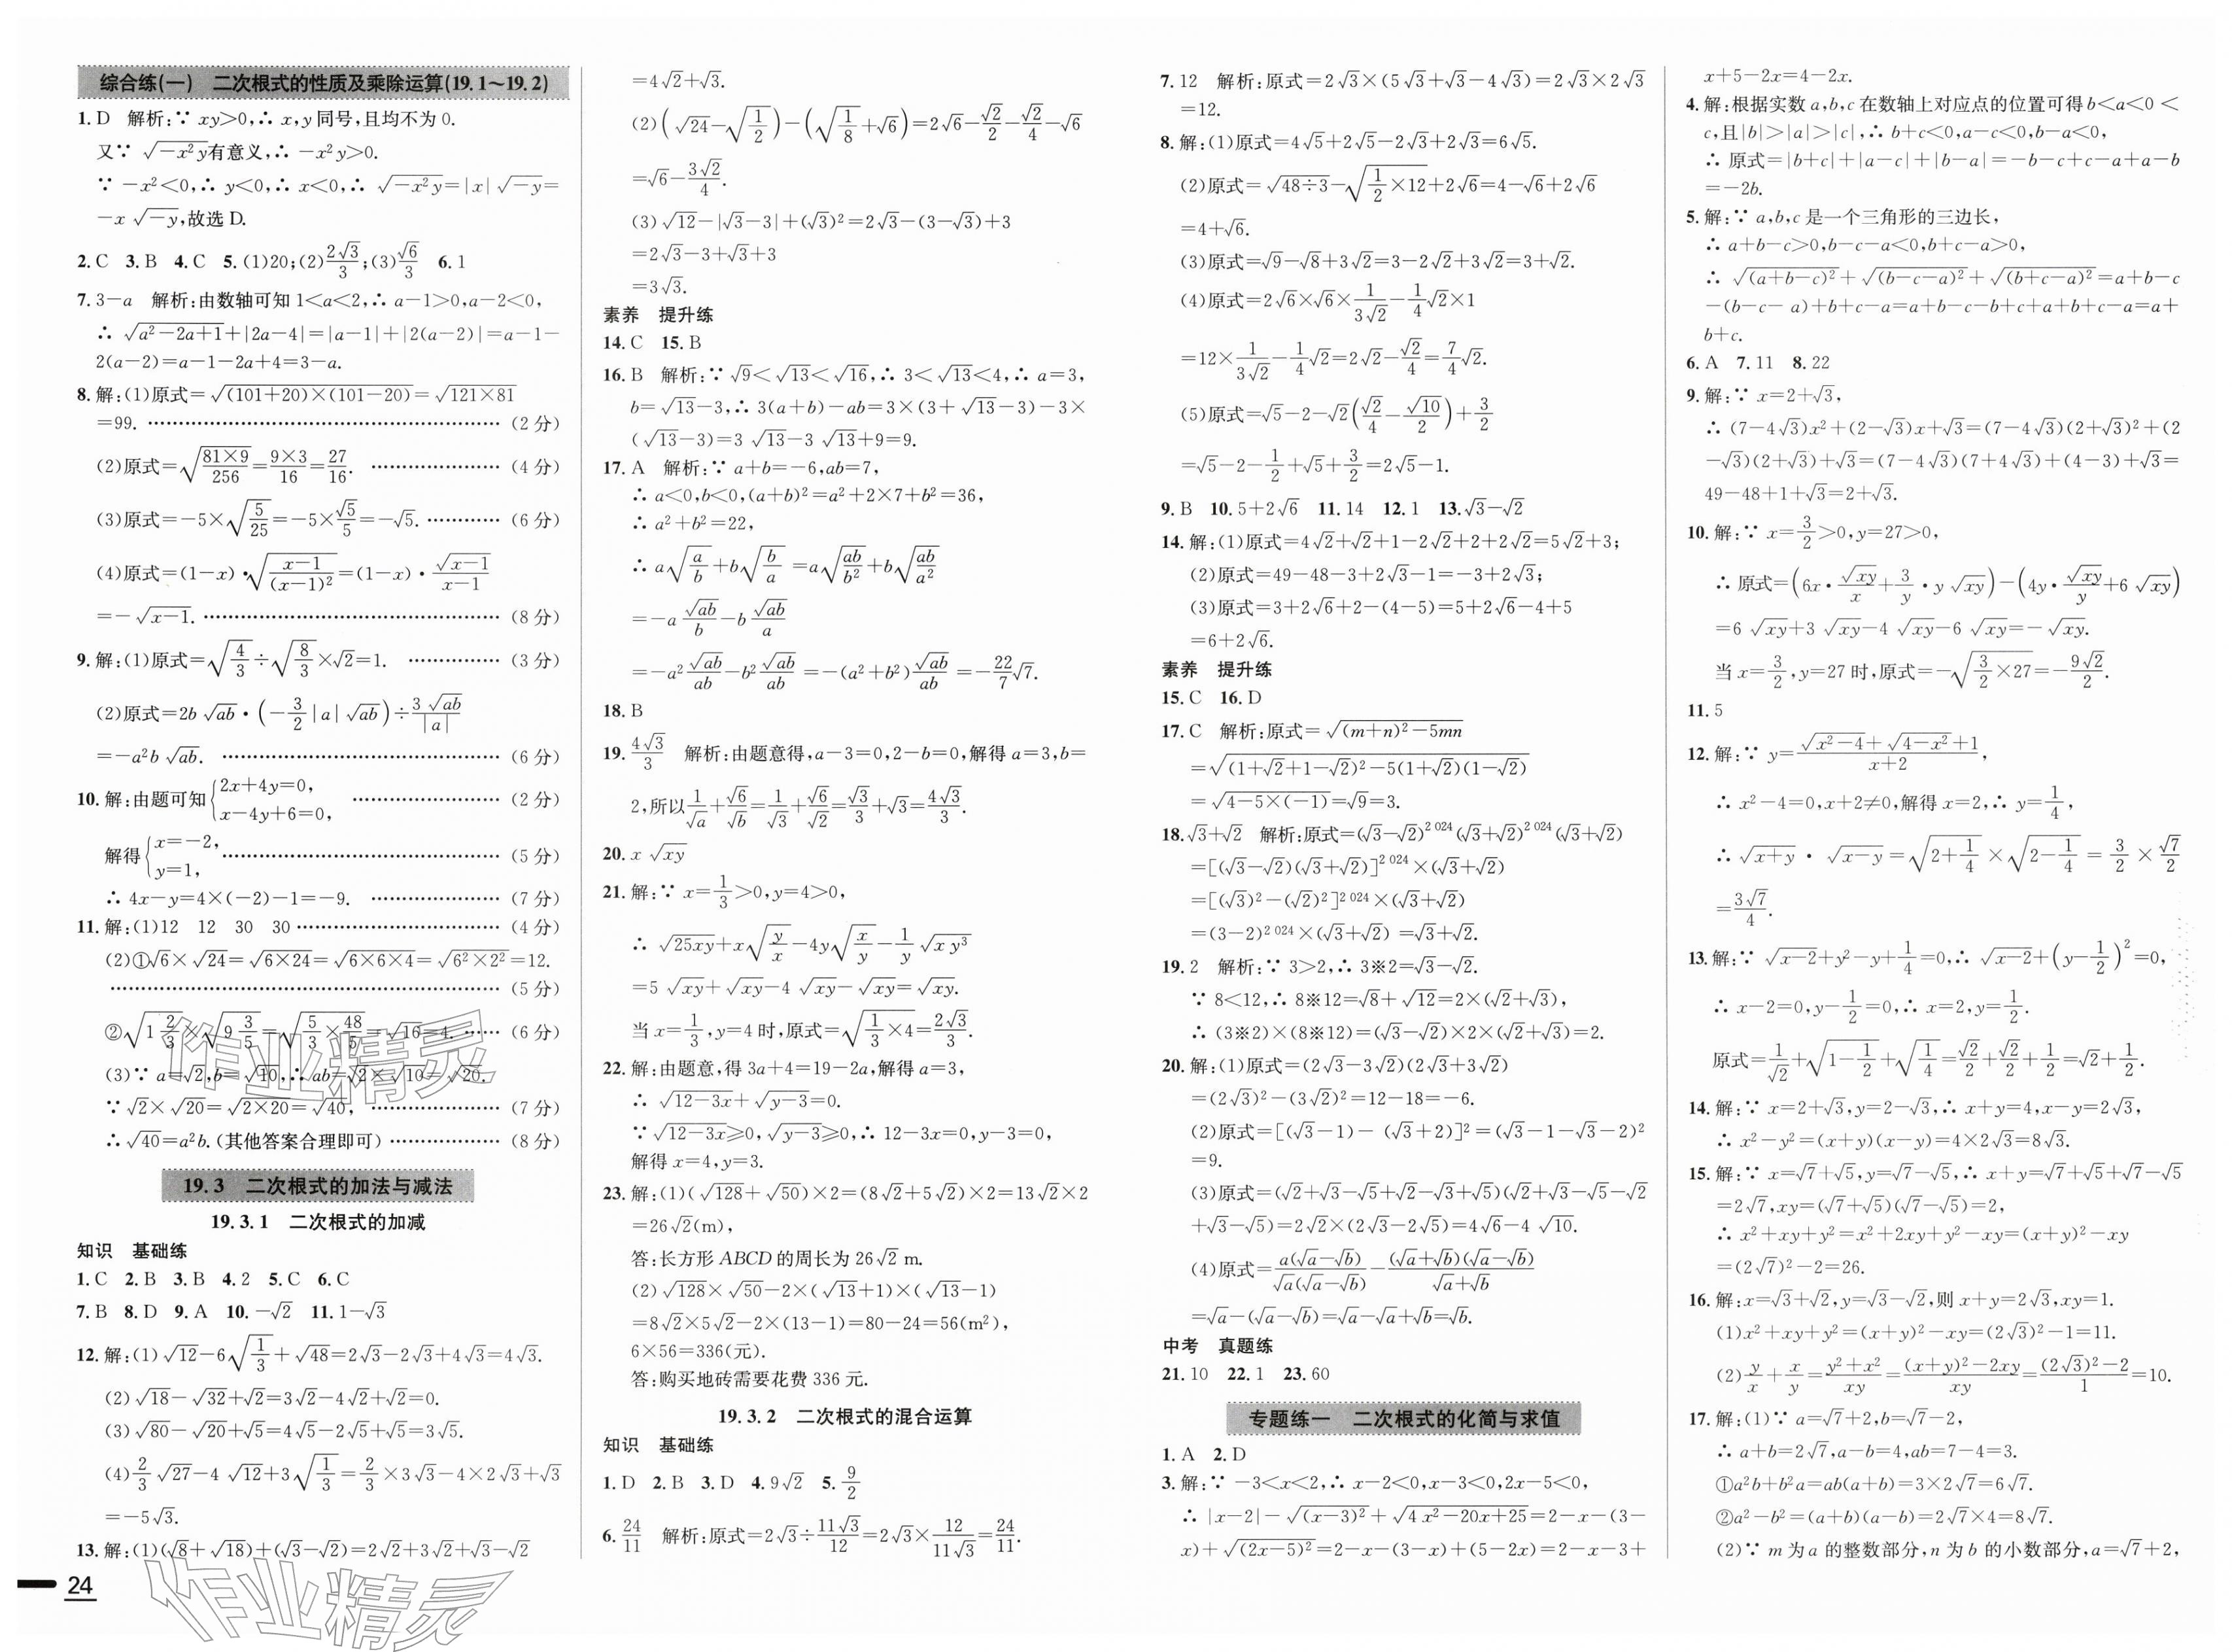 综合练(一) 二次根式的性质及乘除运算(19.1～19.2)
1. D 解析:∵ xy>0,∴ x,y同号,且均不为0.
又∵ √(-x²y)有意义,∴ -x²y>0.
∵ -x²<0,∴ y<0,∴ x<0,∴ √(-x²y)=|x|√(-y)=
-x√(-y),故选D.
2. C 3. B 4. C 5. (1)20;(2)2√3/3;(3)√6/3 6. 1
7. 3-a 解析:由数轴可知1<a<2,∴ a-1>0,a-2<0,
∴ √(a²-2a+1)+|2a-4|=|a-1|+|2(a-2)|=a-1-
2(a-2)=a-1-2a+4=3-a.
8. 解:(1)原式=√((101+20)×(101-20))=√(121×81)
=99. …… (2分)
(2)原式=√(81×9/256)=9×3/16=27/16. …… (4分)
(3)原式=-5×√(5/25)=-5×√5/5=-√5. …… (6分)
(4)原式=(1-x)·√((x-1)/(x-1)²)=(1-x)·√(x-1)/(x-1)
=-√(x-1). …… (8分)
9. 解:(1)原式=√(4/3)÷√(8/3)×√2=1. …… (3分)
(2)原式=2b√(ab)·(-3/2|a|√(ab))÷3√(ab)/|a|
=-a²b√(ab). …… (6分)
10. 解:由题可知{2x+4y=0, x-4y+6=0, …… (2分)
解得{x=-2, y=1, …… (5分)
∴ 4x-y=4×(-2)-1=-9. …… (7分)
11. 解:(1)12 12 30 30 …… (4分)
(2)①√6×√24=√(6×24)=√(6×6×4)=√(6²×2²)=12.
…… (5分)
②√(1 2/3)×√(9 3/5)=√(5/3×48/5)=√16=4. …… (6分)
(3)∵ a=√2,b=√10,∴ ab=√2×√10=√20.
∵ √2×√20=√(2×20)=√40, …… (7分)
∴ √40=a²b.(其他答案合理即可) …… (8分)
19.3 二次根式的加法与减法
19.3.1 二次根式的加减
知识 基础练
1. C 2. B 3. B 4. 2 5. C 6. C
7. B 8. D 9. A 10. -√2 11. 1-√3
12. 解:(1)√12-6√(1/3)+√48=2√3-2√3+4√3=4√3.
(2)√18-√32+√2=3√2-4√2+√2=0.
(3)√80-√20+√5=4√5-2√5+√5=3√5.
(4)2/3√27-4√12+3√(1/3)=2/3×3√3-4×2√3+√3
=-5√3.
13. 解:(1)(√8+√18)+(√3-√2)=2√2+3√2+√3-√2
24
=4√2+√3.
(2)(√24-√(1/2))-(√(1/8)+√6)=2√6-√2/2-√2/4-√6
=√6-3√2/4.
(3)√12-|√3-3|+(√3)²=2√3-(3-√3)+3
=2√3-3+√3+3
=3√3.
素养 提升练
14. C 15. B
16. B 解析:∵ √9<√13<√16,∴ 3<√13<4,∴ a=3,
b=√13-3,∴ 3(a+b)-ab=3×(3+√13-3)-3×
(√13-3)=3√13-3√13+9=9.
17. A 解析:∵ a+b=-6,ab=7,
∴ a<0,b<0,(a+b)²=a²+2×7+b²=36,
∴ a²+b²=22,
∴ a√(a/b)+b√(b/a)=a√(ab/b²)+b√(ab/a²)
=-a√(ab)/b-b√(ab)/a
=-a²√(ab)/ab-b²√(ab)/ab=-(a²+b²)√(ab)/ab=-22/7√7.
18. B
19. 4√3/3 解析:由题意得,a-3=0,2-b=0,解得a=3,b=
2,所以1/√a+√6/√b=1/√3+√6/√2=√3/3+√3=4√3/3.
20. x√(xy)
21. 解:∵ x=1/3>0,y=4>0,
∴ √(25xy)+x√(y/x)-4y√(x/y)-1/y√(xy³)
=5√(xy)+√(xy)-4√(xy)-√(xy)=√(xy).
当x=1/3,y=4时,原式=√(1/3×4)=2√3/3.
22. 解:由题意,得3a+4=19-2a,解得a=3,
∴ √(12-3x)+√(y-3)=0.
∵ √(12-3x)≥0,√(y-3)≥0,∴ 12-3x=0,y-3=0,
解得x=4,y=3.
23. 解:(1)(√128+√50)×2=(8√2+5√2)×2=13√2×2
=26√2(m),
答:长方形ABCD的周长为26√2 m.
(2)√128×√50-2×(√13+1)×(√13-1)
=8√2×5√2-2×(13-1)=80-24=56(m²),
6×56=336(元).
答:购买地砖需要花费336元.
19.3.2 二次根式的混合运算
知识 基础练
1. D 2. B 3. D 4. 9√2 5. 9/2
6. 24/11 解析:原式=2√3÷11√3/12=2√3×12/(11√3)=24/11.
7. 12 解析:原式=2√3×(5√3+√3-4√3)=2√3×2√3
=12.
8. 解:(1)原式=4√5+2√5-2√3+2√3=6√5.
(2)原式=√(48÷3)-√(1/2×12)+2√6=4-√6+2√6
=4+√6.
(3)原式=√9-√8+3√2=3-2√2+3√2=3+√2.
(4)原式=2√6×√6×1/(3√2)-1/4√2×1
=12×1/(3√2)-1/4√2=2√2-√2/4=7/4√2.
(5)原式=√5-2-√2(√2/4-√10/2)+3/2
=√5-2-1/2+√5+3/2=2√5-1.
9. B 10. 5+2√6 11. 14 12. 1 13. √3-√2
14. 解:(1)原式=4√2+√2+1-2√2+2+2√2=5√2+3;
(2)原式=49-48-3+2√3-1=-3+2√3;
(3)原式=3+2√6+2-(4-5)=5+2√6-4+5
=6+2√6.
素养 提升练
15. C 16. D
17. C 解析:原式=√((m+n)²-5mn)
=√((1+√2+1-√2)²-5(1+√2)(1-√2))
=√(4-5×(-1))=√9=3.
18. √3+√2 解析:原式=(√3-√2)^2 024(√3+√2)^2 024(√3+√2)
=[(√3-√2)(√3+√2)]^2 024×(√3+√2)
=[(√3)²-(√2)²]^2 024×(√3+√2)
=(3-2)^2 024×(√3+√2)=√3+√2.
19. 2 解析:∵ 3>2,∴ 3※2=√3-√2.
∵ 8<12,∴ 8※12=√8+√12=2×(√2+√3),
∴ (3※2)×(8※12)=(√3-√2)×2×(√2+√3)=2.
20. 解:(1)原式=(2√3-3√2)(2√3+3√2)
=(2√3)²-(3√2)²=12-18=-6.
(2)原式=[(√3-1)-(√3+2)]²=(√3-1-√3-2)²
=9.
(3)原式=(√2+√3-√5+√2-√3+√5)(√2+√3-√5-√2
+√3-√5)=2√2×(2√3-2√5)=4√6-4√10.
(4)原式=a(√a-√b)/(√a(√a-√b))-(√a+√b)(√a-√b)/(√a+√b)
=√a-(√a-√b)=√a-√a+√b=√b.
中考 真题练
21. 10 22. 1 23. 60
专题练一 二次根式的化简与求值
1. A 2. D
3. 解:∵ -3<x<2,∴ x-2<0,x-3<0,2x-5<0,
∴ |x-2|-√((x-3)²)+√(4x²-20x+25)=2-x-(3-
x)+√((2x-5)²)=2-x-(3-x)+(5-2x)=2-x-3+
x+5-2x=4-2x.
4. 解:根据实数a,b,c在数轴上对应点的位置可得b<a<0<
c,且|b|>|a|>|c|,∴ b+c<0,a-c<0,b-a<0,
∴ 原式=|b+c|+|a-c|+|b-a|=-b-c+c-a+a-b
=-2b.
5. 解:∵ a,b,c是一个三角形的三边长,
∴ a+b-c>0,b-c-a<0,b+c-a>0,
∴ √((a+b-c)²)+√((b-c-a)²)+√((b+c-a)²)=a+b-c
-(b-c-a)+b+c-a=a+b-c-b+c+a+b+c-a=a+
b+c.
6. A 7. 11 8. 22
9. 解:∵ x=2+√3,
∴ (7-4√3)x²+(2-√3)x+√3=(7-4√3)(2+√3)²+(2
-√3)(2+√3)+√3=(7-4√3)(7+4√3)+(4-3)+√3=
49-48+1+√3=2+√3.
10. 解:∵ x=3/2>0,y=27>0,
∴ 原式=(6x·√(xy)/x+3/y·y√(xy))-(4y·√(xy)/y+6√(xy))
=6√(xy)+3√(xy)-4√(xy)-6√(xy)=-√(xy).
当x=3/2,y=27时,原式=-√(3/2×27)=-9√2/2.
11. 5
12. 解:∵ y=(√(x²-4)+√(4-x²)+1)/(x+2),
∴ x²-4=0,x+2≠0,解得x=2,∴ y=1/4,
∴ √(x+y)·√(x-y)=√(2+1/4)×√(2-1/4)=3/2×√7/2
=3√7/4.
13. 解:∵ √(x-2)+y²-y+1/4=0,∴ √(x-2)+(y-1/2)²=0,
∴ x-2=0,y-1/2=0,∴ x=2,y=1/2.
原式=1/√2+√(1-1/2)+√(1/4)=√2/2+√2/2+1/2=√2+1/2.
14. 解:∵ x=2+√3,y=2-√3,∴ x+y=4,x-y=2√3,
∴ x²-y²=(x+y)(x-y)=4×2√3=8√3.
15. 解:∵ x=√7+√5,y=√7-√5,∴ x+y=√7+√5+√7-√5
=2√7,xy=(√7+√5)(√7-√5)=2,
∴ x²+xy+y²=x²+2xy+y²-xy=(x+y)²-xy
=(2√7)²-2=26.
16. 解:x=√3+√2,y=√3-√2,则x+y=2√3,xy=1.
(1)x²+xy+y²=(x+y)²-xy=(2√3)²-1=11.
(2)y/x+x/y=(y²+x²)/xy=((x+y)²-2xy)/xy=((2√3)²-2)/1=10.
17. 解:(1)∵ a=√7+2,b=√7-2,
∴ a+b=2√7,a-b=4,ab=7-4=3.
①a²b+b²a=ab(a+b)=3×2√7=6√7.
②a²-b²=(a+b)(a-b)=2√7×4=8√7.
(2)∵ m为a的整数部分,n为b的小数部分,a=√7+2,
作业精灵
作业精灵